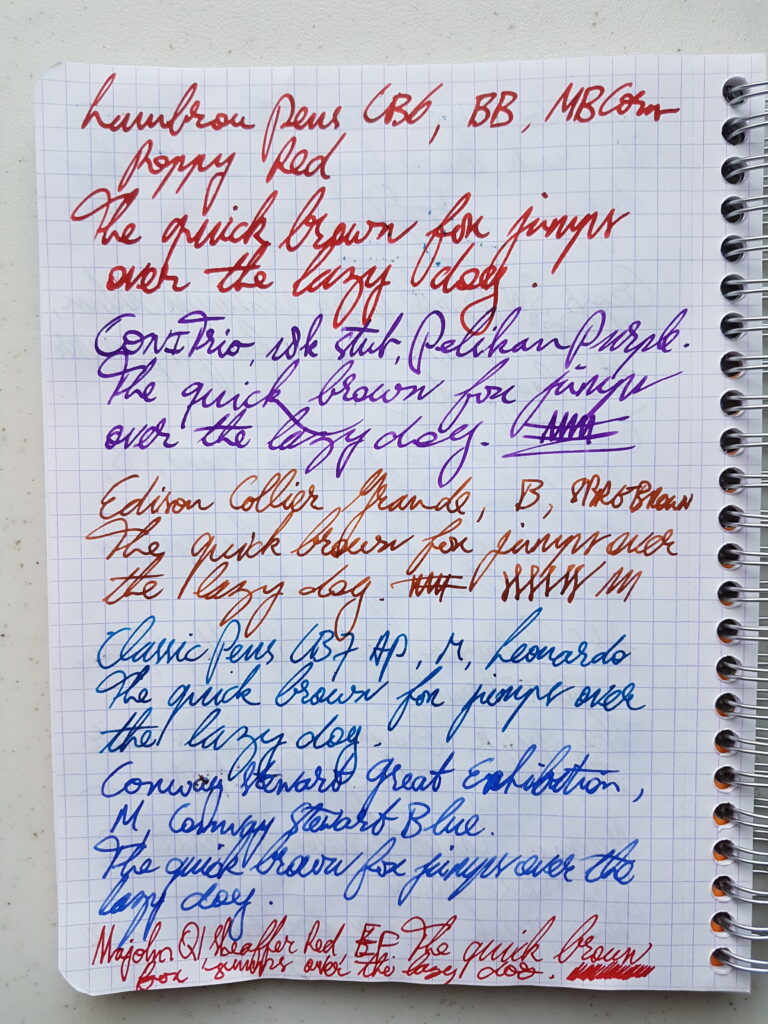 Lambrou Pens LB6, BB, MB Corn
Poppy Red
The quick brown fox jumps
over the lazy dog.
Trio, 18k stub, Pelikan Purple.
The quick brown fox jumps
over the lazy dog.
Edison Collier Grande, B, BROWN
The quick brown fox jumps over
the lazy dog.
Classic Pens LB7 AP, M, Leonardo
The quick brown fox jumps over
the lazy dog.
Conway Stewart Great Exhibition,
M, Conway Stewart Blue.
The quick brown fox jumps over the
lazy dog.
Majohn Q1 Sheaffer Red, EF. The quick brown
fox jumps over the lazy dog.